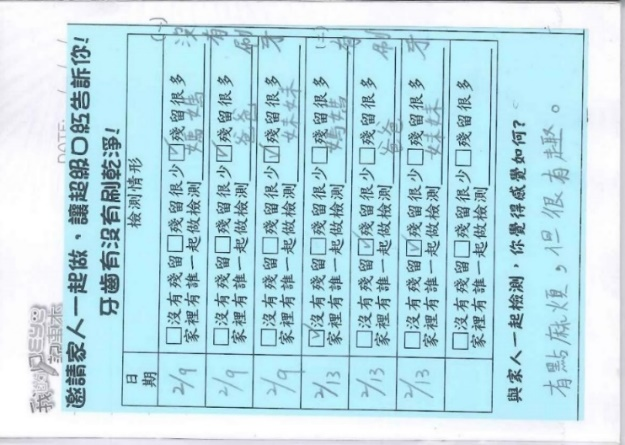 邀請家人一起做，讓超級口紅告訴你！
牙齒有沒有刷乾淨！
日期
檢測情形
(一) 沒有刷牙
2/9
☐沒有殘留☐殘留很少☑殘留很多
家裡有誰一起做檢測 媽媽
2/9
☐沒有殘留☐殘留很少☑殘留很多
家裡有誰一起做檢測 爸爸
2/9
☐沒有殘留☐殘留很少☑殘留很多
家裡有誰一起做檢測 妹妹
(二) 有刷牙
2/13
☑沒有殘留☐殘留很少☐殘留很多
家裡有誰一起做檢測 媽媽
2/13
☐沒有殘留☑殘留很少☐殘留很多
家裡有誰一起做檢測 爸爸
2/13
☐沒有殘留☑殘留很少☐殘留很多
家裡有誰一起做檢測 妹妹
☐沒有殘留☐殘留很少☐殘留很多
家裡有誰一起做檢測
與家人一起檢測，你覺得感覺如何？
有點麻煩，但很有趣。
DATE: